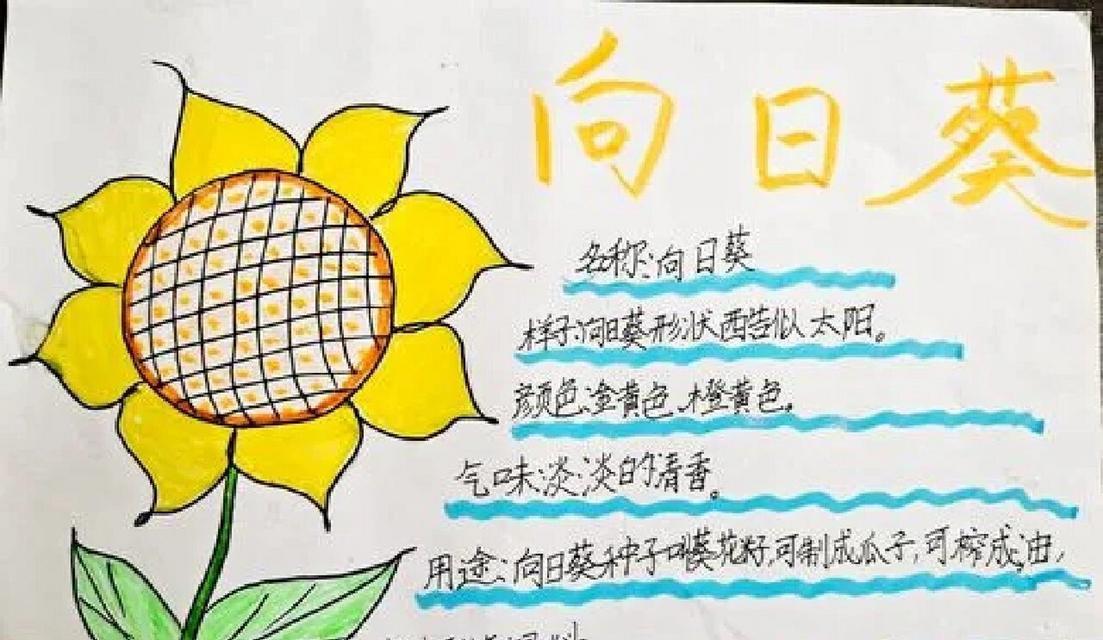 向日葵
名称:向日葵
样子:向日葵形状酷似太阳。
颜色:金黄色、橙黄色。
气味:淡淡的清香。
用途:向日葵种子叫葵花籽,可制成瓜子,可榨成油,